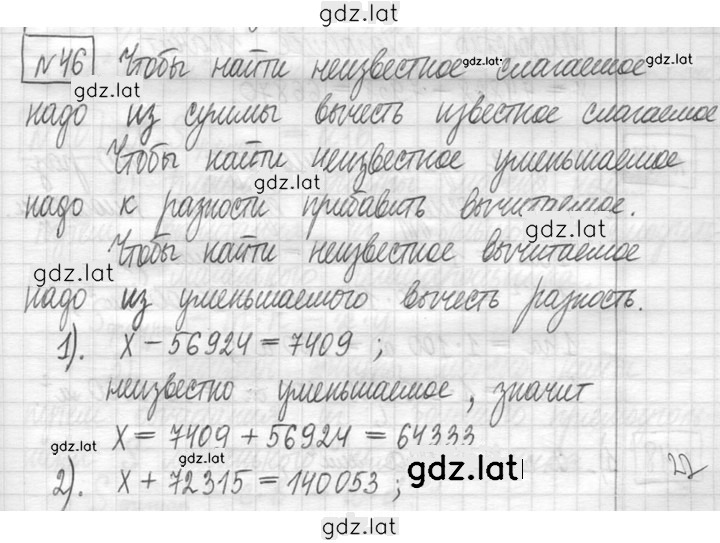 gdz.lat
№46 Чтобы найти неизвестное gdz.lat слагаемое gdz.lat
gdz.lat
надо из суммы вычесть известное слагаемое
Чтобы найти неизвестное уменьшаемое
gdz.lat
надо к разности прибавить вычитаемое.
gdz.lat
Чтобы найти неизвестное вычитаемое
gdz.lat
надо из уменьшаемого вычесть разность.
1). x – 56924 = 7409 ;
неизвестно уменьшаемое, значит
x = 7409 + 56924 = 64333
gdz.lat gdz.lat gdz.lat 22
2). x + 72315 = 140053 ;
gdz.lat